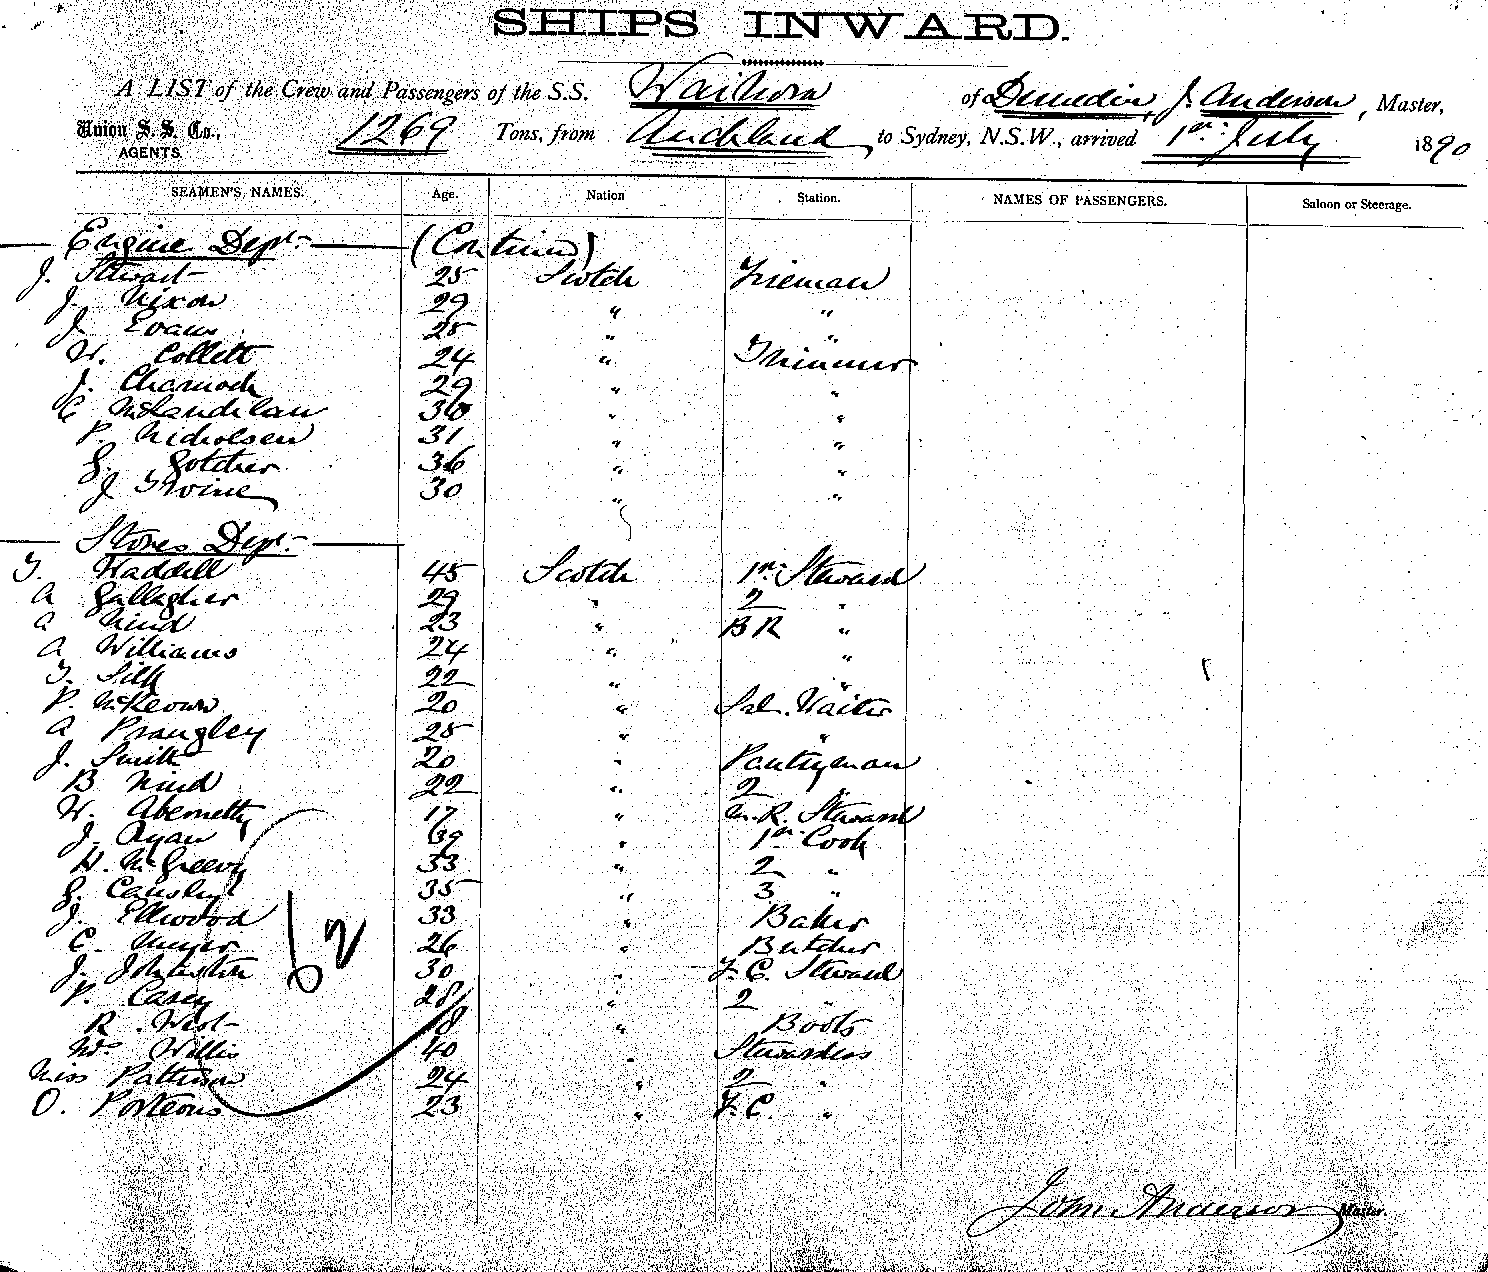 SHIPS INWARD.
A LIST of the Crew and Passengers of the S.S. Waihora of Dunedin, J. Anderson, Master,
Union S. S. Co., AGENTS. 1269 Tons, from Auckland to Sydney, N.S.W., arrived 1st July 1890
SEAMEN'S NAMES. Age. Nation Station. NAMES OF PASSENGERS. Saloon or Steerage.
Engine Dept. (Continued)
J. Stewart 25 Scotch Fireman
J. Nixon 29 " "
J. Evans 25 " "
W. Collett 24 " Trimmer
J. Charnock 29 " "
C McLauchlan 30 " "
P. Nicholsen 31 " "
G. Gotcher 36 " "
J Irvine 30 " "
Stores Dept.
T. Waddell 45 Scotch 1st Steward
A Gallagher 29 " 2 "
A Nind 23 " B R "
A Williams 24 " "
T. Silk 22 " "
P. McKeown 20 " Sal. Waiter
A Prangley 25 " "
J. Smith 20 " Pantryman
B Nind 22 " 2 "
W. Abernethy 17 " M.R. Steward
J. Ryan 39 " 1st Cook
H. McGreevy 33 " 2 "
G. Causley 35 " 3 "
J. Ellwood 33 " Baker
C. Meyer 26 " Butcher
J. Johnston 30 " F.C. Steward
P. Casey 28 " 2 "
R. West 18 " Boots
Mrs Willis 40 " Stewardess
Miss Patterson 24 " 2 "
O. Porteous 23 " F.C. "
62
John Anderson Master.